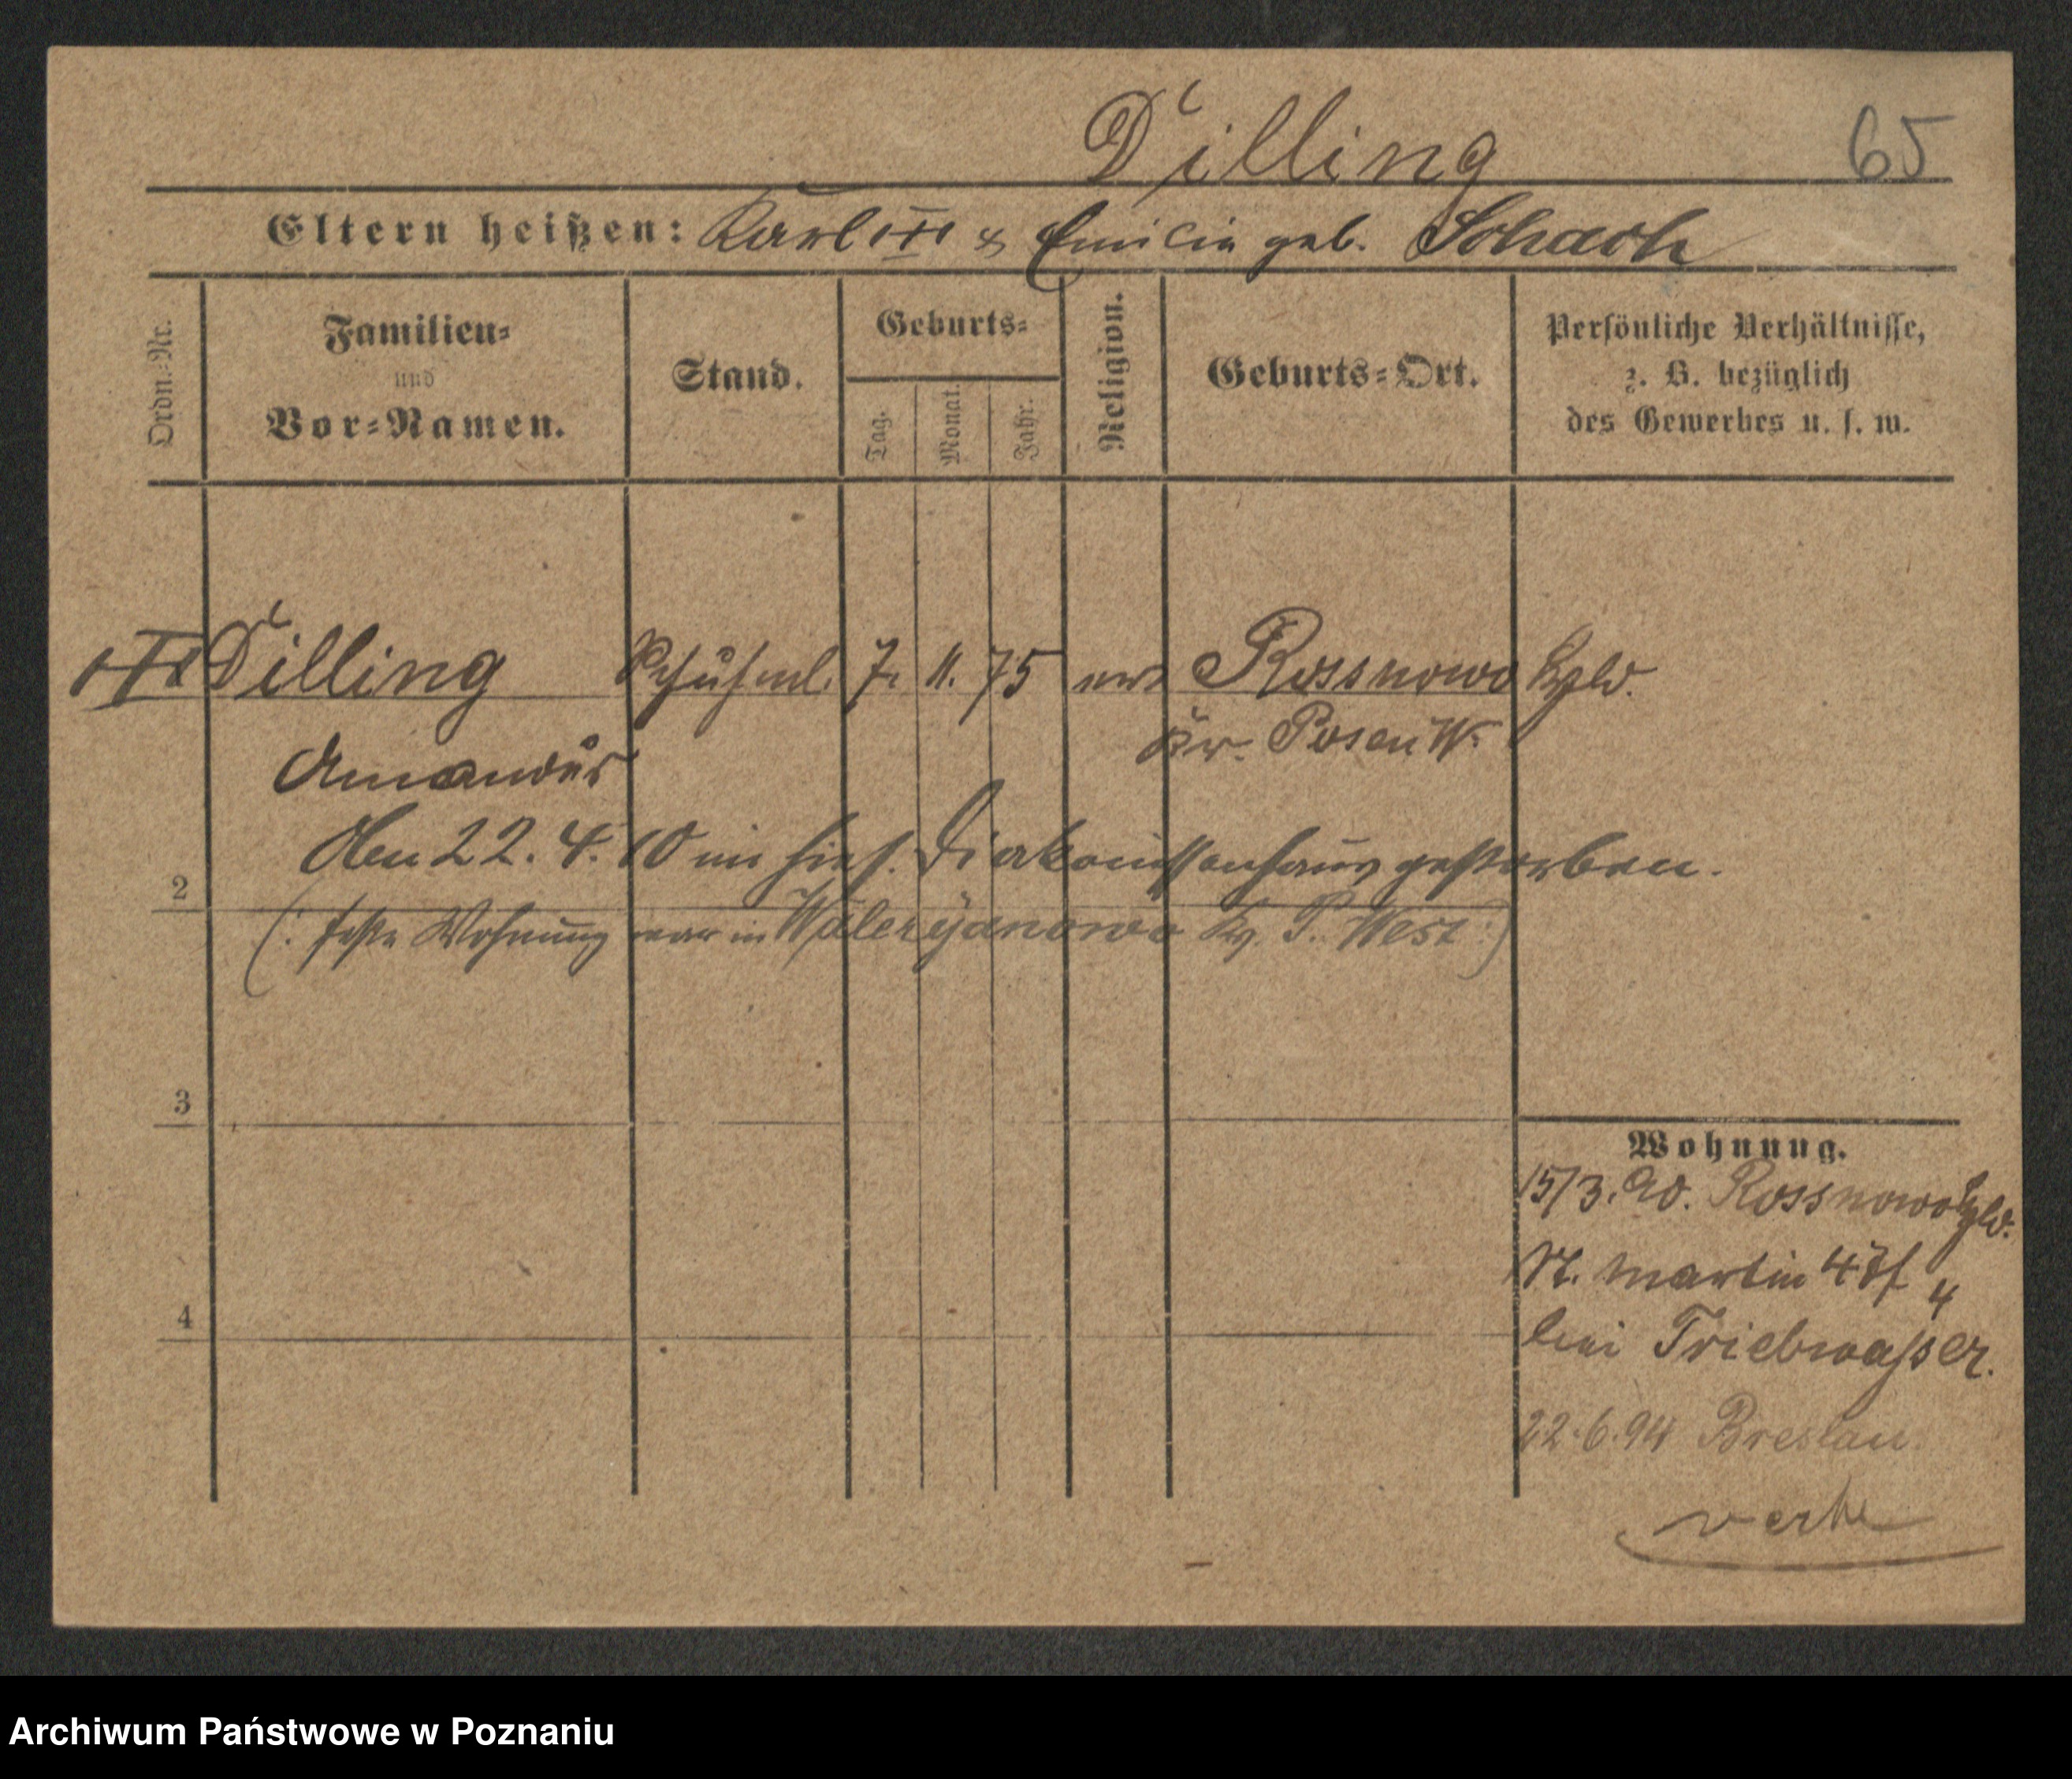 Dilling 65
Eltern heißen: Karl ††† & Emilie geb. Schach
Ordn.-Nr.
Familien-
und
Vor-Namen.
Stand.
Geburts-
Tag.
Monat.
Jahr.
Religion.
Geburts-Ort.
Persönliche Verhältnisse,
z. B. bezüglich
des Gewerbes u. s. w.
Dilling 7. 11. 75 Rossnowo Hld.
Amandus Kr. Posen W.
Den 22. 4. 10 im hies. Diakonissenhaus gestorben.
2
(: feste Wohnung war in Waleryanowo Kr. P. West :)
3
Wohnung.
15/3. 90. Rossnowo Hld.
St. Martin
4
bei Triebwasser.
22.6.94 Breslau.